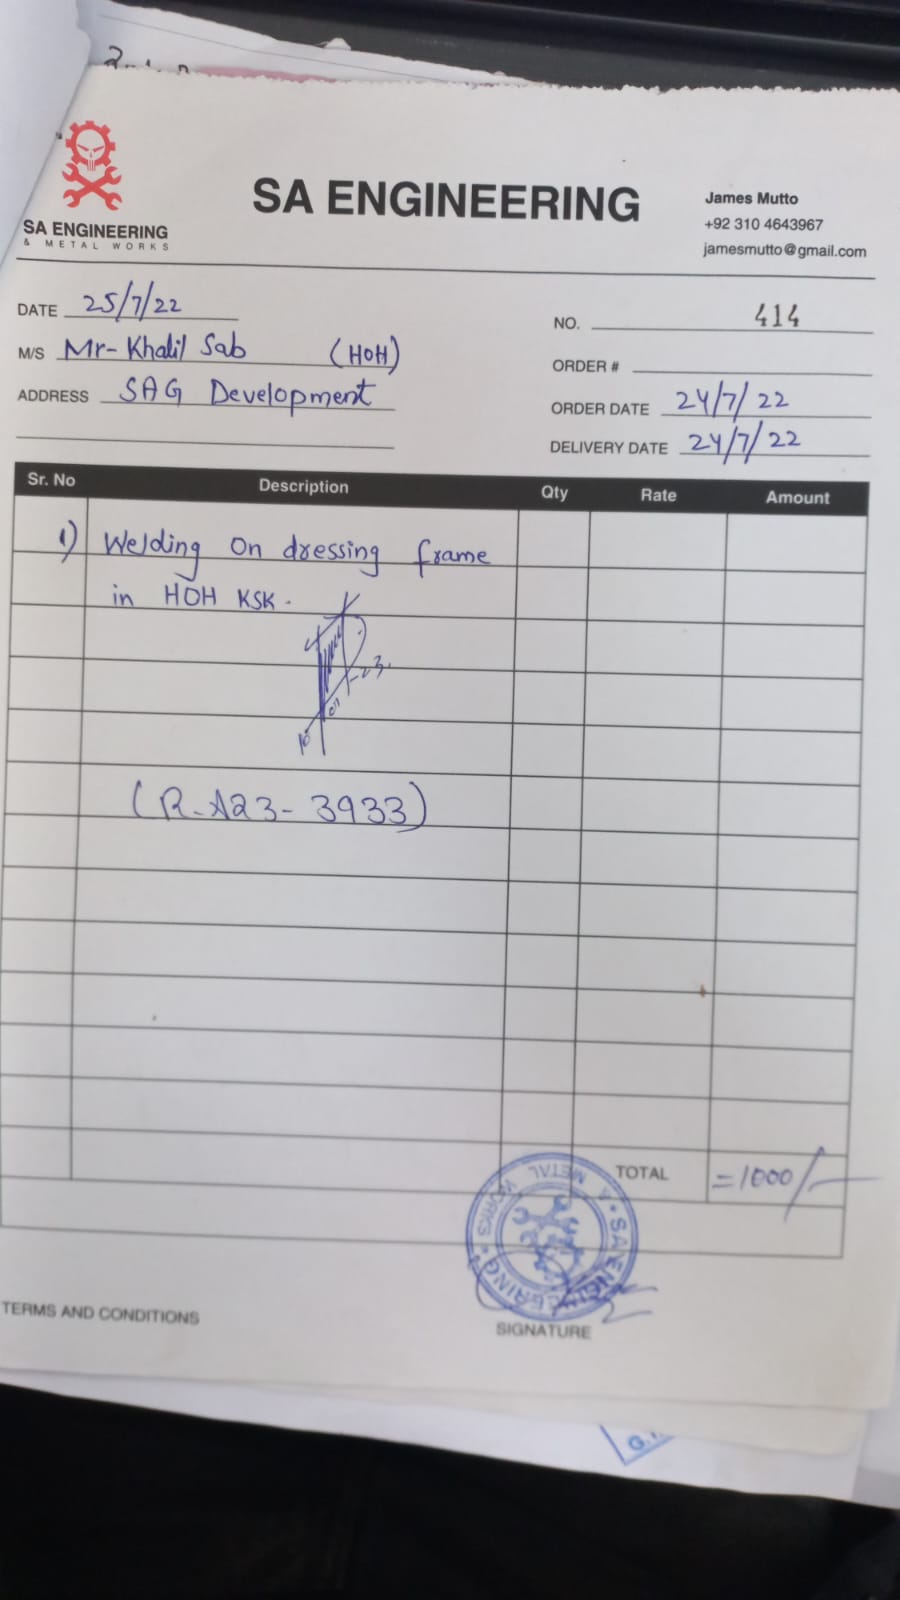 SA ENGINEERING
& METAL WORKS
SA ENGINEERING
James Mutto
+92 310 4643967
jamesmutto@gmail.com
DATE 25/7/22
NO. 414
M/S Mr- Khalil Sab (HOH)
ORDER #
ADDRESS SAG Development
ORDER DATE 24/7/22
DELIVERY DATE 24/7/22
Sr. No Description Qty Rate Amount
1) Welding On dressing frame
in HOH KSK.
(R-A23-3933)
TOTAL =1000/-
SA ENGINEERING & METAL WORKS
TERMS AND CONDITIONS
SIGNATURE